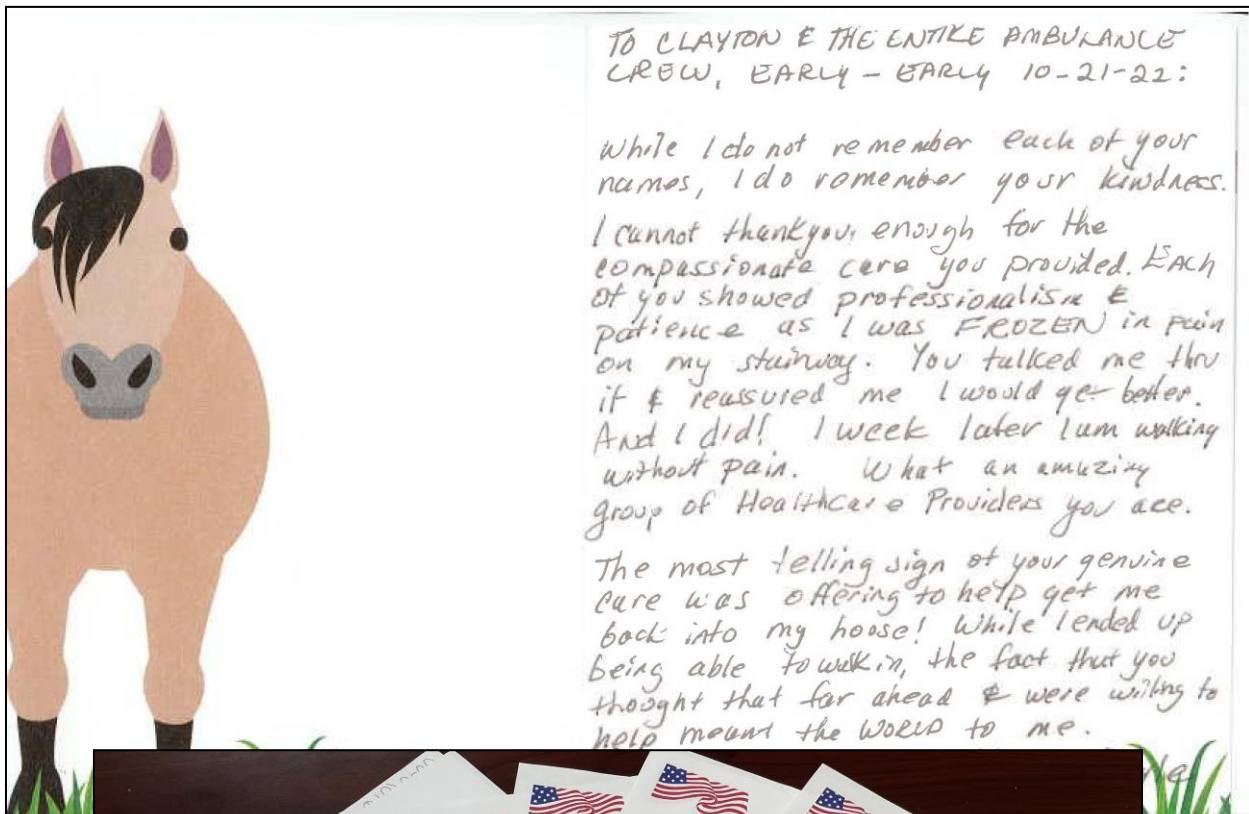 TO CLAYTON & THE ENTIRE AMBULANCE
CREW, EARLY - EARLY 10-21-22:
While I do not remember each of your
names, I do remember your kindness.
I cannot thankyou enough for the
compassionate care you provided. EACH
of you showed professionalism &
patience as I was FROZEN in pain
on my stairway. You talked me thru
it & reassured me I would get better.
And I did! 1 week later I am walking
without pain. What an amazing
group of Healthcare Providers you are.
The most telling sign of your genuine
care was offering to help get me
back into my house! While I ended up
being able to walk in, the fact that you
thought that far ahead & were willing to
help meant the WORLD to me.